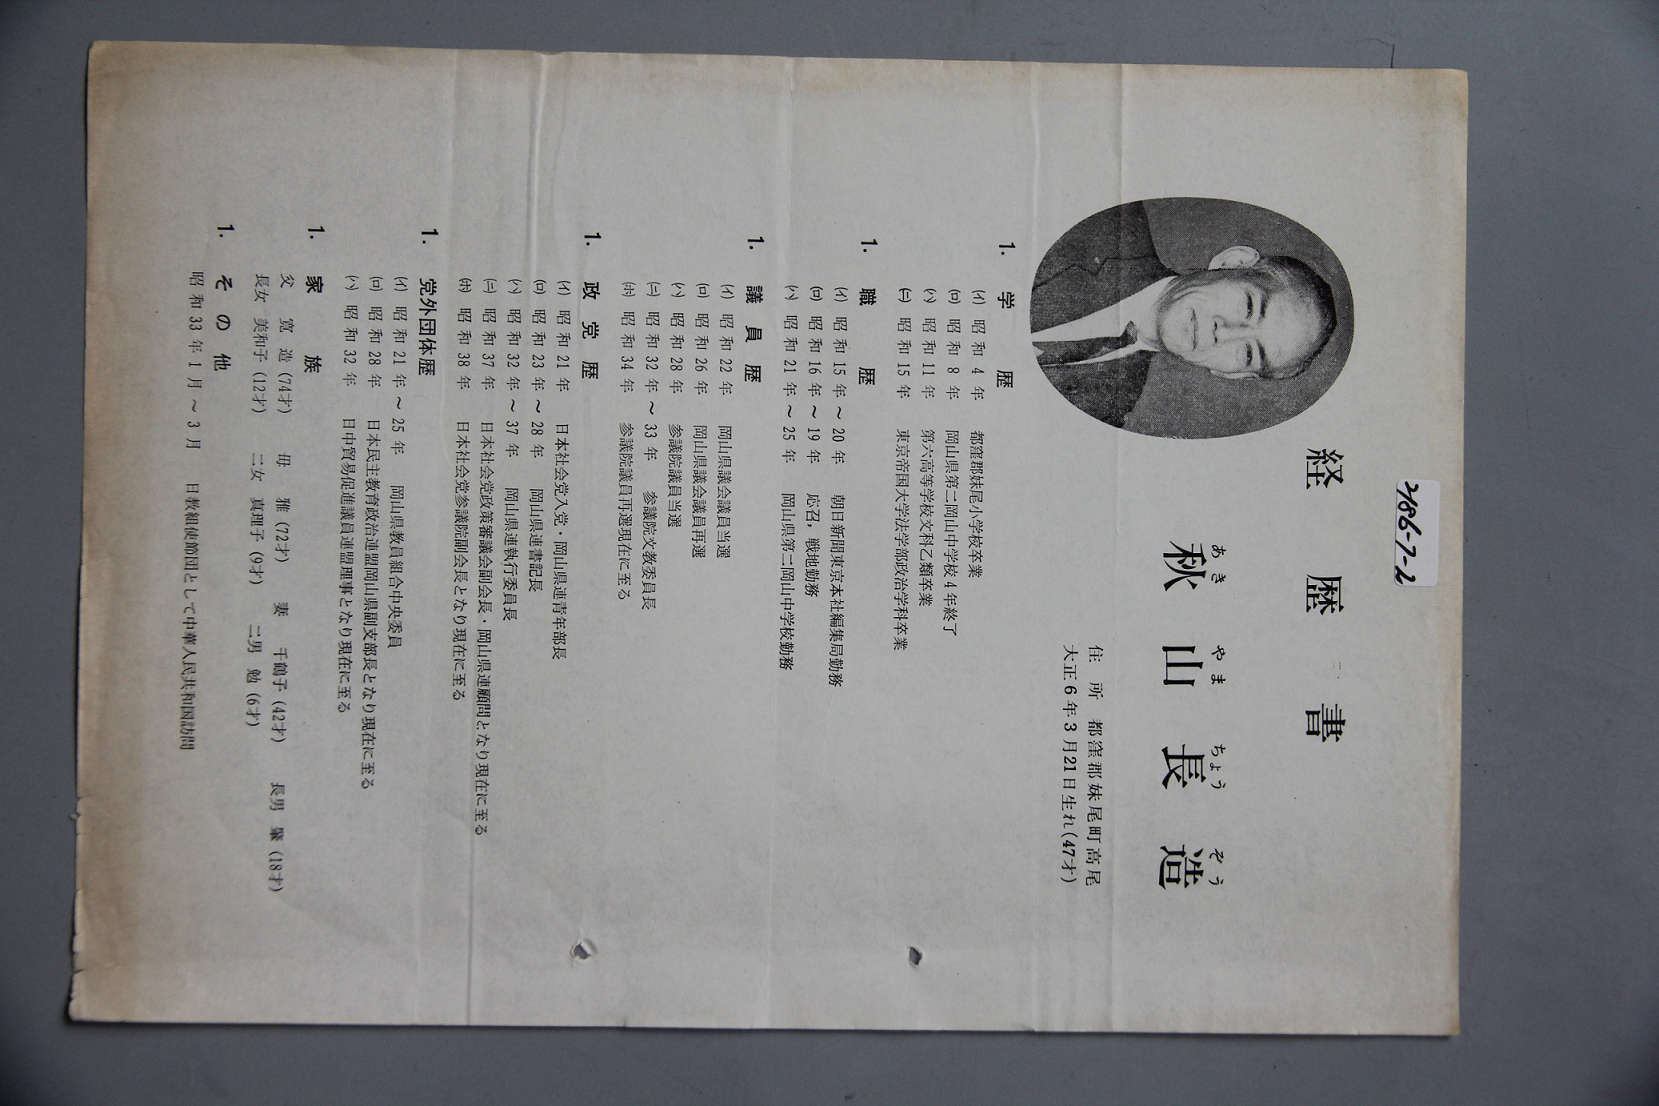 2186-7-2
経歴書
あき やま ちょう ぞう
秋山長造
住所 都窪郡妹尾町高尾
大正6年3月21日生れ(47才)
1. 学歴
(イ) 昭和4年 都窪郡妹尾小学校卒業
(ロ) 昭和8年 岡山県第二岡山中学校4年終了
(ハ) 昭和11年 第六高等学校文科乙類卒業
(ニ) 昭和15年 東京帝国大学法学部政治学科卒業
1. 職歴
(イ) 昭和15年～20年 朝日新聞東京本社編集局勤務
(ロ) 昭和16年～19年 応召，戦地勤務
(ハ) 昭和21年～25年 岡山県第二岡山中学校勤務
1. 議員歴
(イ) 昭和22年 岡山県議会議員当選
(ロ) 昭和26年 岡山県議会議員再選
(ハ) 昭和28年 参議院議員当選
(ニ) 昭和32年～33年 参議院文教委員長
(ホ) 昭和34年 参議院議員再選現在に至る
1. 政党歴
(イ) 昭和21年 日本社会党入党・岡山県連青年部長
(ロ) 昭和23年～28年 岡山県連書記長
(ハ) 昭和32年～37年 岡山県連執行委員長
(ニ) 昭和37年 日本社会党政策審議会副会長・岡山県連顧問となり現在に至る
(ホ) 昭和38年 日本社会党参議院副会長となり現在に至る
1. 党外団体歴
(イ) 昭和21年～25年 岡山県教員組合中央委員
(ロ) 昭和28年 日本民主教育政治連盟岡山県副支部長となり現在に至る
(ハ) 昭和32年 日中貿易促進議員連盟理事となり現在に至る
1. 家族
父 寛造(74才) 母 雅(72才) 妻 千鶴子(42才) 長男 肇(18才)
長女 美和子(12才) 二女 真理子(9才) 二男 勉(6才)
1. その他
昭和33年1月～3月 日教組使節団として中華人民共和国訪問